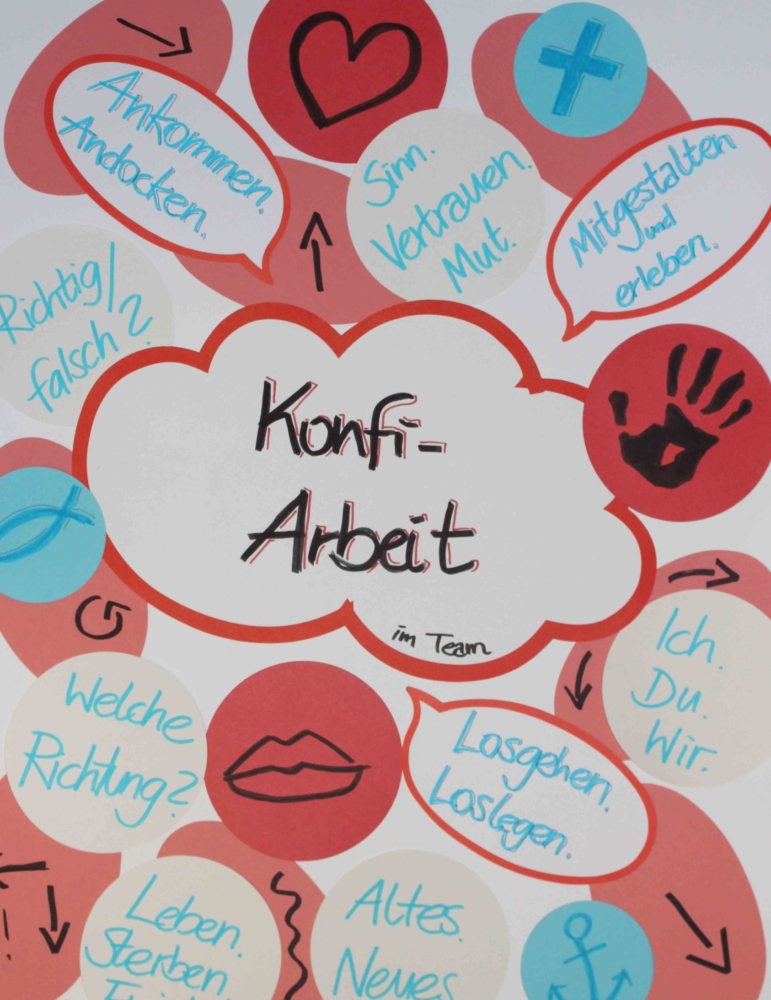 Ankommen.
Andocken.
Sinn.
Vertrauen.
Mut.
Mitgestalten
und
erleben.
Richtig/
falsch?
Konfi-
Arbeit
im Team
Ich.
Du.
Wir.
Welche
Richtung?
Losgehen.
Loslegen.
Leben.
Sterben
Altes.
Neues